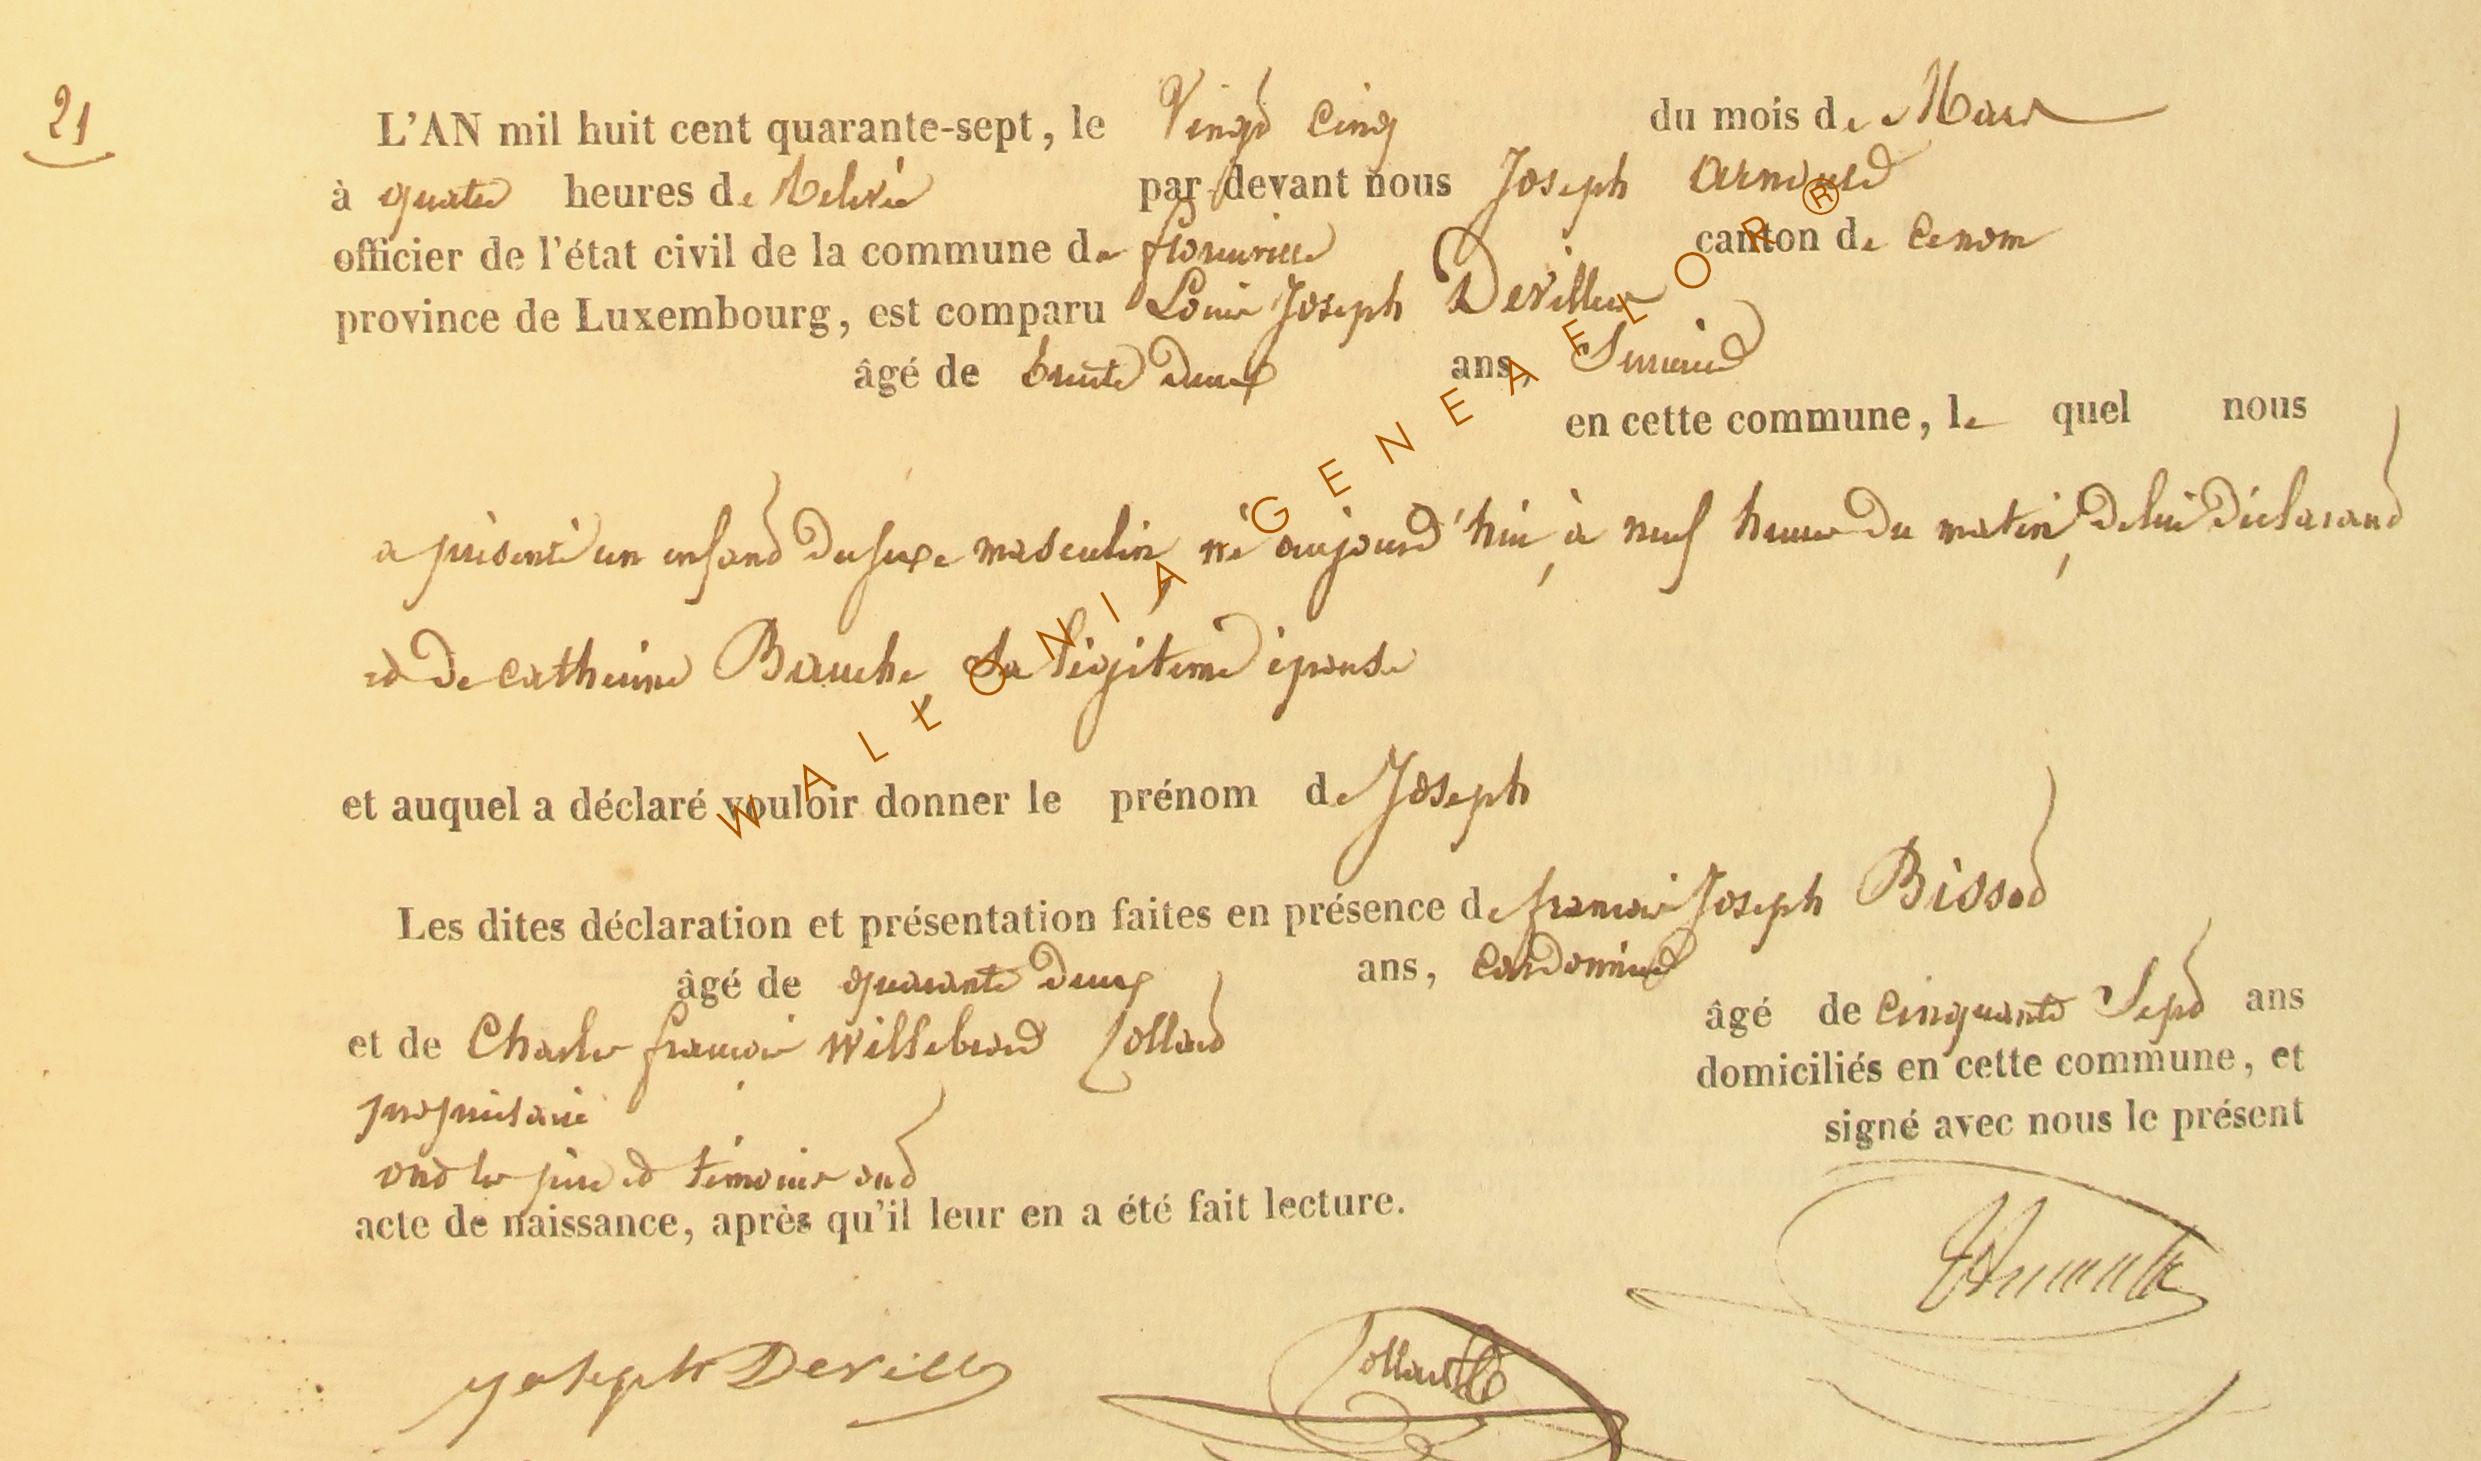 21
L'AN mil huit cent quarante-sept, le Vingt cinq du mois de Mars
à quatre heures de Relevée par devant nous Joseph Arnould
officier de l'état civil de la commune de florenville canton de idem
province de Luxembourg, est comparu Louis Joseph Deville
âgé de trente deux ans, Serrurier
en cette commune, le quel nous
a présenté un enfant du sexe masculin né aujourd'hui, à neuf heures du matin, de lui déclarant
et de Catherine Bauche, Sa légitime épouse
et auquel a déclaré vouloir donner le prénom de Joseph
Les dites déclaration et présentation faites en présence de françois Joseph Bissot
âgé de quarante deux ans, Cordonnier
et de Charles françois Willebrord Collard âgé de Cinquante Sept ans
propriétaire domiciliés en cette commune, et
ont les père et témoins ont signé avec nous le présent
acte de naissance, après qu'il leur en a été fait lecture.
Joseph Deville
Collard
WALLONIA GENEAFLOR ®